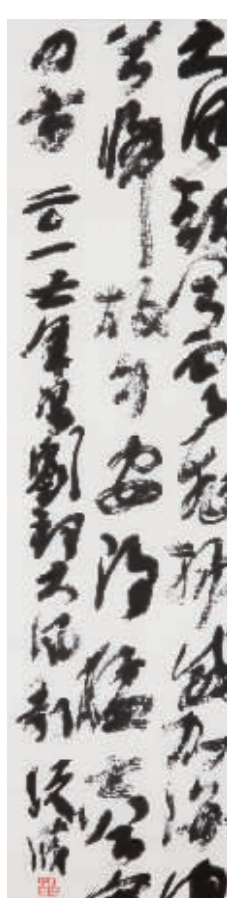 大風起兮雲飛揚威加海内
兮歸故鄉安得猛士兮守
四方 二〇一七年劉邦大風歌